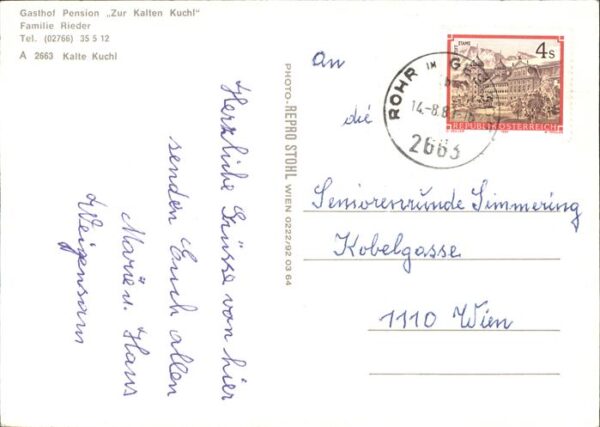 Gasthof Pension „Zur Kalten Kuchl"
Familie Rieder
Tel. (02766) 35 5 12
A 2663 Kalte Kuchl
Herzliche Grüsse von hier
senden Euch allen
Marie u. Hans
PHOTO-REPRO STOHL WIEN 0222/92 03 64
An
die
Seniorenrunde Simmering
Kobelgasse
1110 Wien
STAMS
4 S
REPUBLIK ÖSTERREICH
ROHR IM GE
14.-8.8
2663